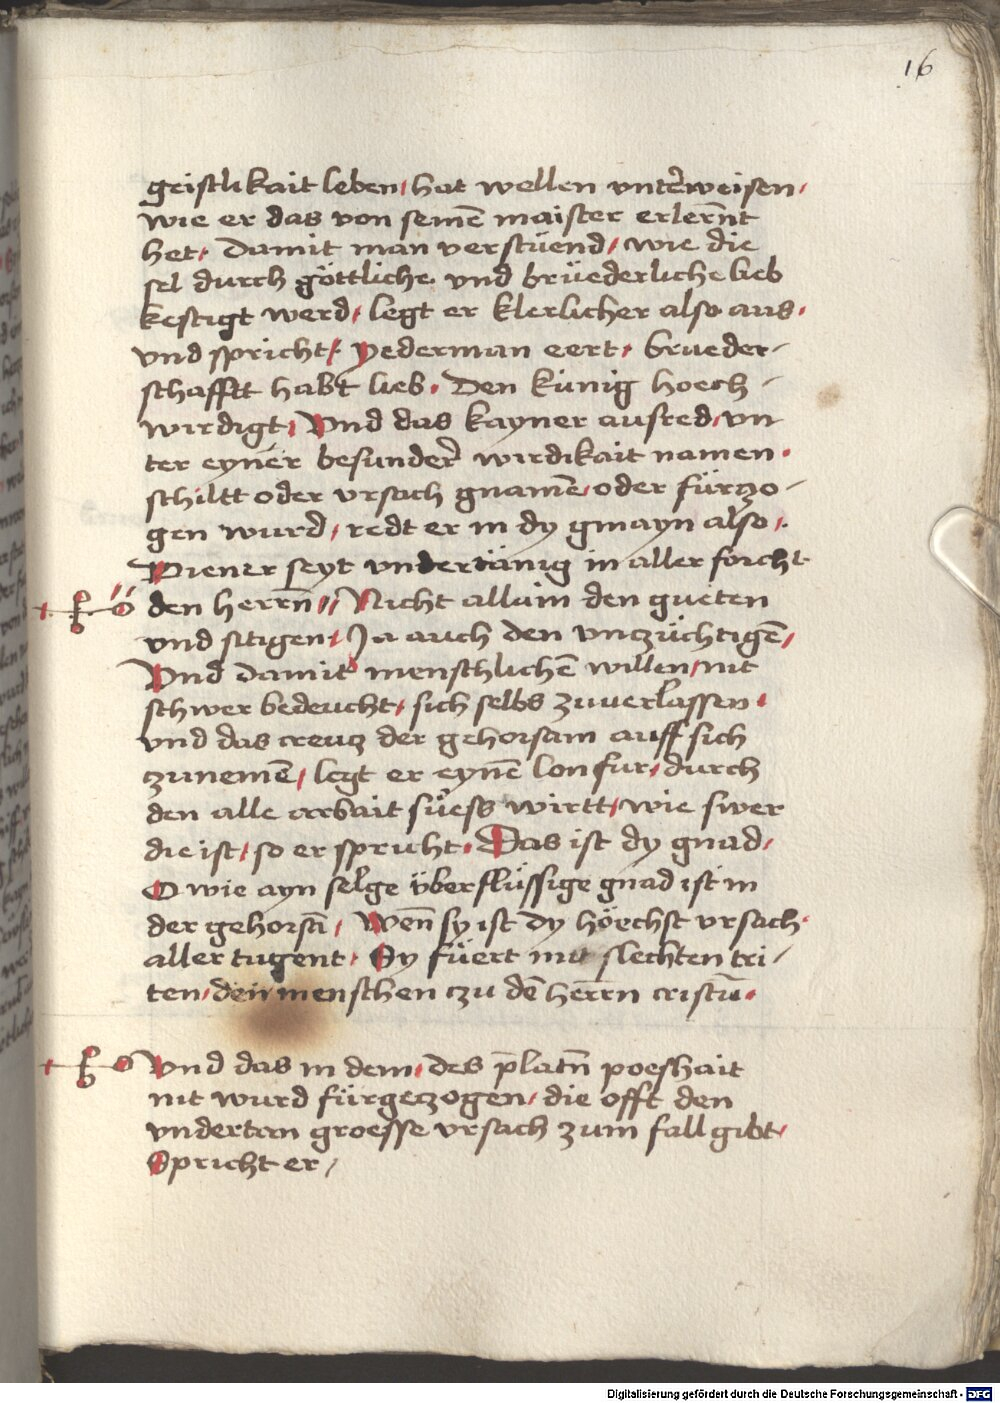 16
geistlikait leben / hat wellen vnterweisen /
wie er das von seinē maister erlernnt
het / Damit man verstüend / wie die
sel durch göttliche. vnd brüederliche lieb
kestigt werd / legt er klerlicher also aus.
vnd spricht / Yederman eert / brueder-
schafftt habt lieb. Den künig hoech-
wirdigt / Vnd das kayner ausred / vn
ter eyner besunder wirdikait namen.
schiltt oder vrsach gnamē / oder fürzo-
gen wurd / redt er in dy gmayn also /.
Diener seyt vndertänig in aller forcht
den herrn // Nicht allain den gueten
vnd sitigen / Ja auch den vnczüchtigē /
Vnd damit menschlichē willen / nit
schwer bedeucht / sich selbs zuuerlassen.
vnd das creucz der gehorsam auff sich
czunemē / legt er eynē lon fur / durch
den alle arbait süess wirtt / wie swer
die ist / so er spricht. Das ist dy gnad /
O wie ayn selge überflüssige gnad ist in
der gehorsā / Wen̄ sy ist dy höechst vrsach.
aller tugent. Sy füert mit slechten tri-
ten / den menschen czu dē herrn cristū.
Vnd das in dem / des p̄latn̄ poeshait
nit wurd fürgeczogen / die offt den
vndertan groesse vrsach zum fall gibt /
Spricht er /
Digitalisierung gefördert durch die Deutsche Forschungsgemeinschaft - DFG